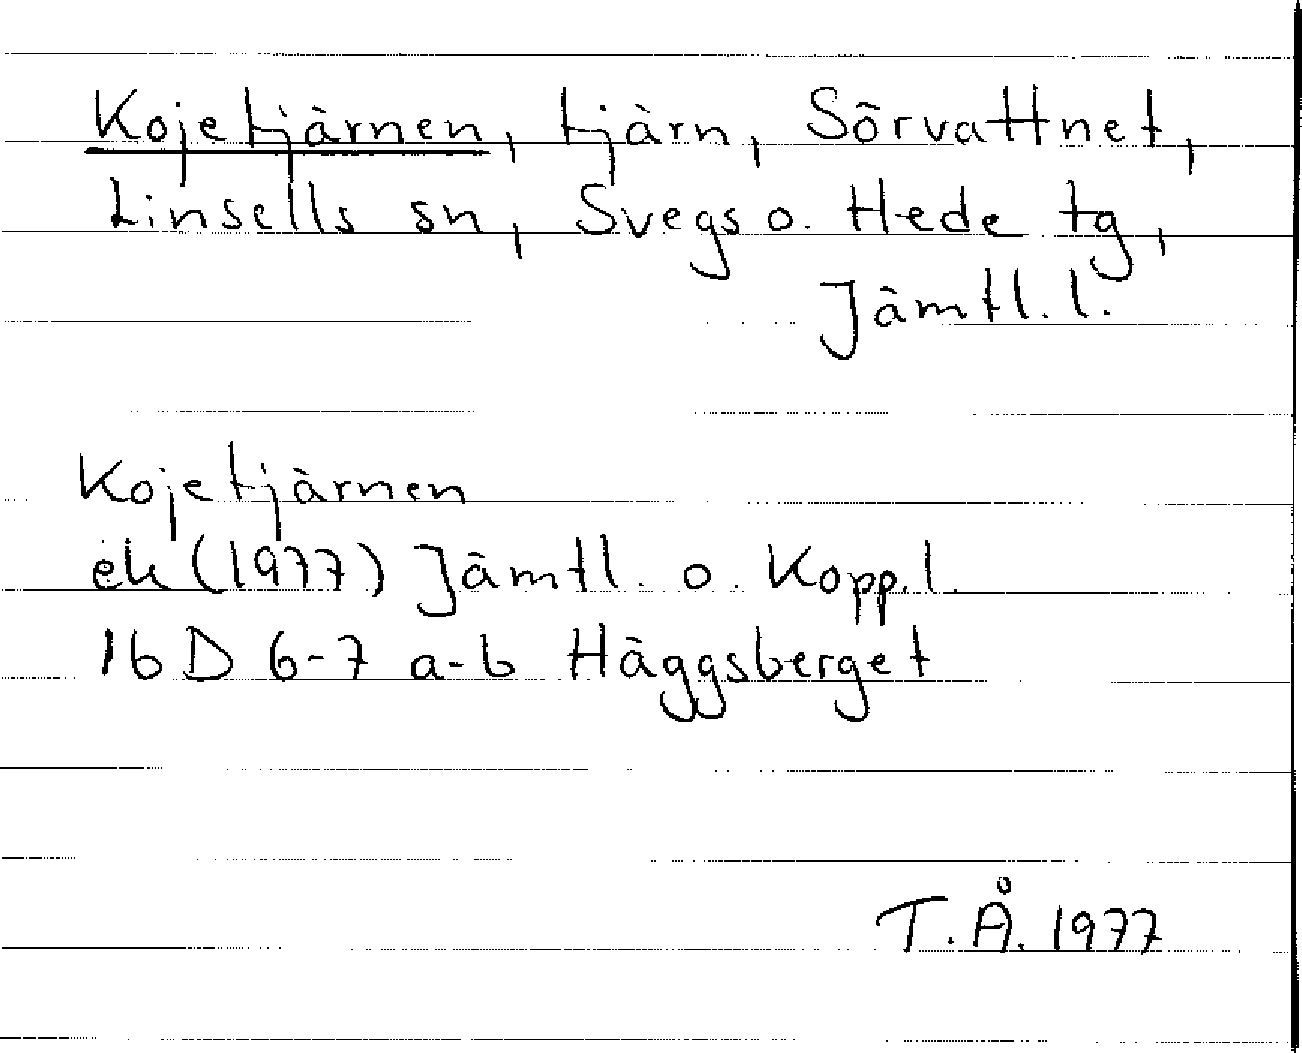 Kojetjärnen, tjärn, Sörvattnet,
Linsells sn, Svegs o. Hede tg,
Jämtl. l.
Kojetjärnen
ek (1977) Jämtl. o. Kopp. l.
16 D 6-7 a-b Häggsberget
T. Å. 1977